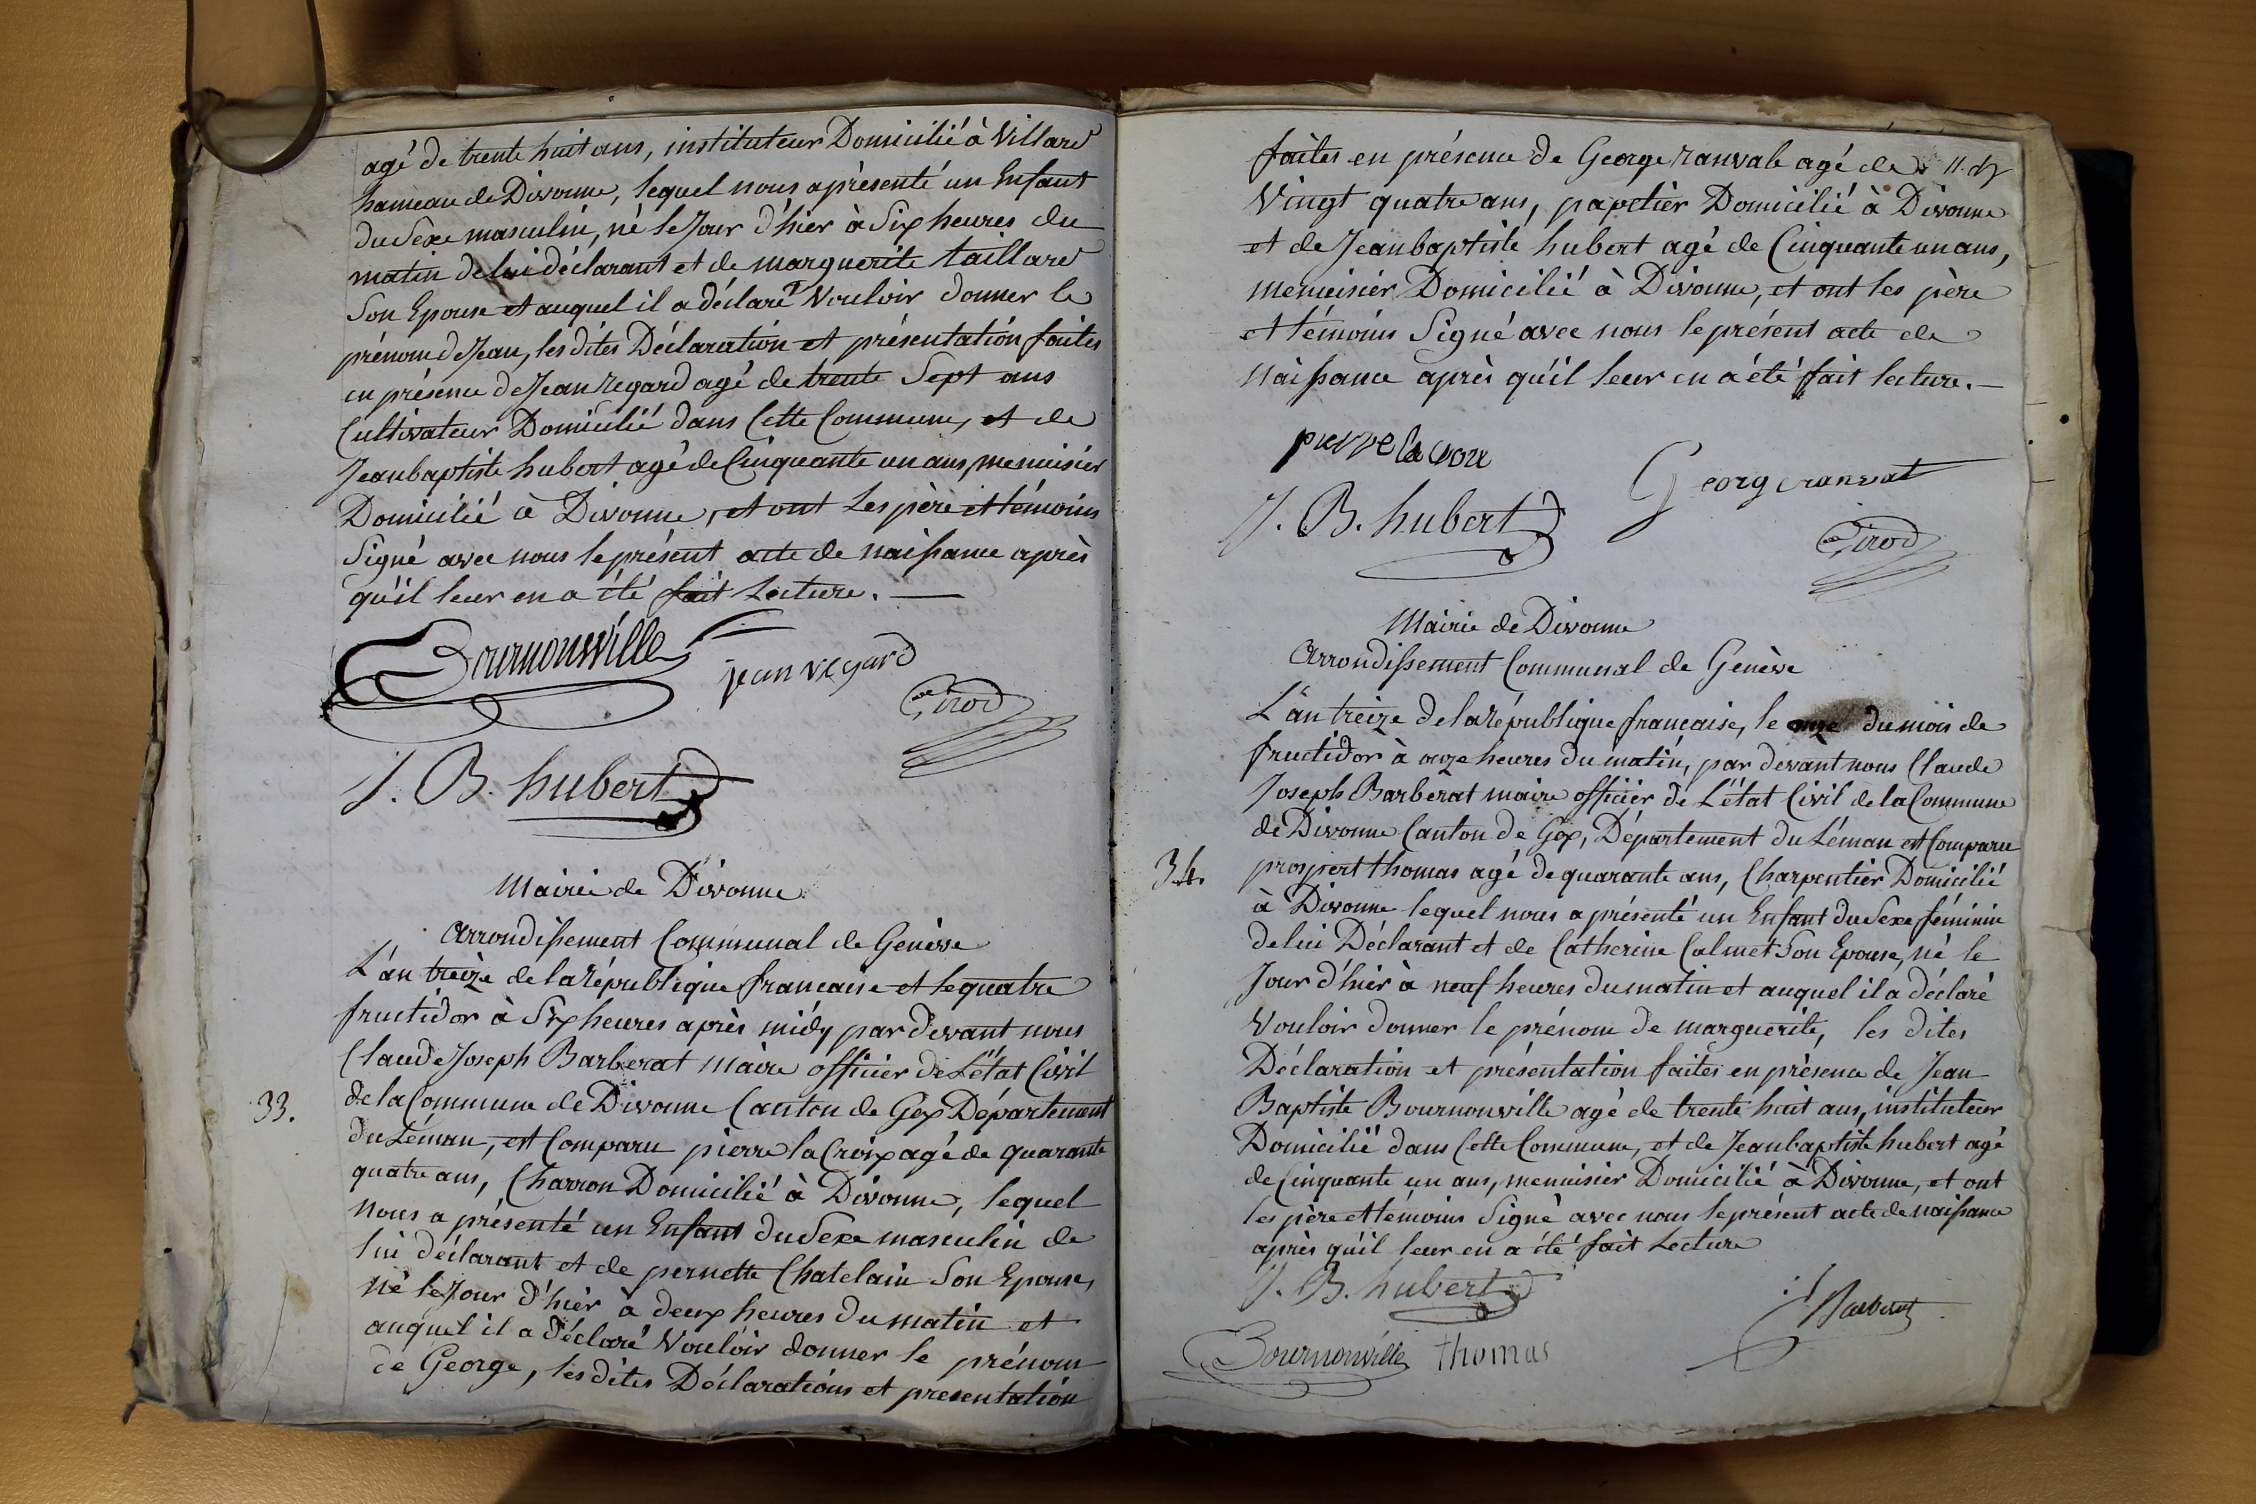 agé de trente huit ans, instituteur Domicilié à Villard
hameau de Divonne, lequel nous a présenté un Enfant
du Sexe masculin, né le Jour d'hier à Six heures du
matin de lui déclarant et de marguerite taillard
Son Epouse et auquel il a déclaré Vouloir donner le
prénom de Jean, les dites Déclaration et présentation faites
en présence de Jean regard agé de trente Sept ans
Cultivateur Domicilié dans Cette Commune, et de
Jean baptiste hubert agé de Cinquante un ans, menuisier
Domicilié à Divonne, et ont Les père et témoins
Signé avec nous le présent acte de naissance après
qu'il leur en a été fait Lecture. —
Bournonville
jean regard
Girod
J. B. hubert
Mairie de Divonne
Arrondissement Communal de Genève
L'an treize de la République francaise et le quatre
fructidor à Six heures après midy par devant nous
Claude Joseph Barberat Maire officier de L'état Civil
33.
de la Commune de Divonne Canton de Gex Département
du Léman, est Comparu pierre la Croix agé de quarante
quatre ans, Charron Domicilié à Divonne, lequel
nous a présenté un Enfant du Sexe masculin de
lui déclarant et de pernette Chatelain Son Epouse,
né le Jour d'hier à deux heures du matin et
auquel il a déclaré Vouloir donner le prénom
de George, les dites Déclarations et presentation
faites en présence de George ranvale agé de
Vingt quatre ans, papetier Domicilié à Divonne
et de Jean baptiste hubert agé de Cinquante un ans,
menuisier Domicilié à Divonne, et ont les père
et témoins Signé avec nous le présent acte de
naissance après qu'il leur en a été fait lecture. —
pierre la
George ranvat
J. B. hubert
Girod
Mairie de Divonne
Arrondissement Communal de Genève
L'an treize de la République francaise, le onze du mois de
fructidor à onze heures du matin, par devant nous Claude
Joseph Barberat maire officier de L'état Civil de la Commune
de Divonne Canton de Gex, Département du Léman est Comparu
34.
prospert thomas agé de quarante ans, Charpentier Domicilié
à Divonne lequel nous a présenté un Enfant du Sexe féminin
de lui Déclarant et de Catherine Calmet Son Epouse, né le
Jour d'hier à neuf heures du matin et auquel il a déclaré
Vouloir donner le prénom de marguerite, les dites
Déclaration et présentation faites en présence de Jean
Baptiste Bournonville agé de trente huit ans, instituteur
Domicilié dans Cette Commune, et de Jean baptiste hubert agé
de Cinquante un ans, menuisier Domicilié à Divonne, et ont
les père et témoins Signé avec nous le présent acte de naissance
après qu'il leur en a été fait Lecture
J. B. hubert
Barberat
Bournonville
thomas